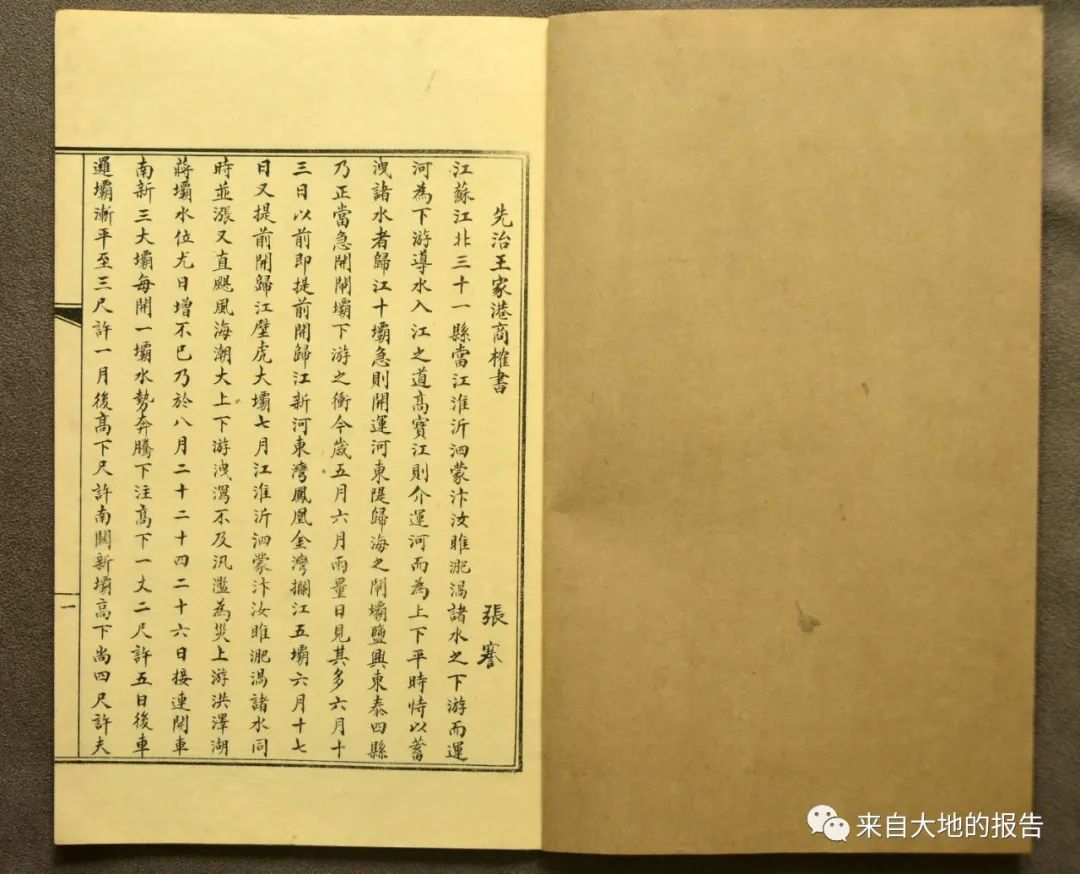 先治王家港商榷書
張謇
江蘇江北三十一縣當江淮沂泗蒙汴汝睢淝渦諸水之下游而運
河為下游導水入江之道高寶江則介運河而為上下平時恃以蓄
洩諸水者歸江十壩急則開運河東隄歸海之閘壩鹽興東泰四縣
乃正當急開閘壩下游之衝今歲五月六月雨量日見其多六月十
三日以前即提前開歸江新河東灣鳳凰金灣攔江五壩六月十七
日又提前開歸江壁虎大壩七月江淮沂泗蒙汴汝睢淝渦諸水同
時並漲又直颶風海潮大上下游洩瀉不及汎濫為災上游洪澤湖
蔣壩水位尤日增不已乃於八月二十二十四二十六日接連開車
南新三大壩每開一壩水勢奔騰下注高下一丈二尺許五日後車
邏壩漸平至三尺許一月後高下尺許南關新壩高下尚四尺許夫
一
来自大地的报告